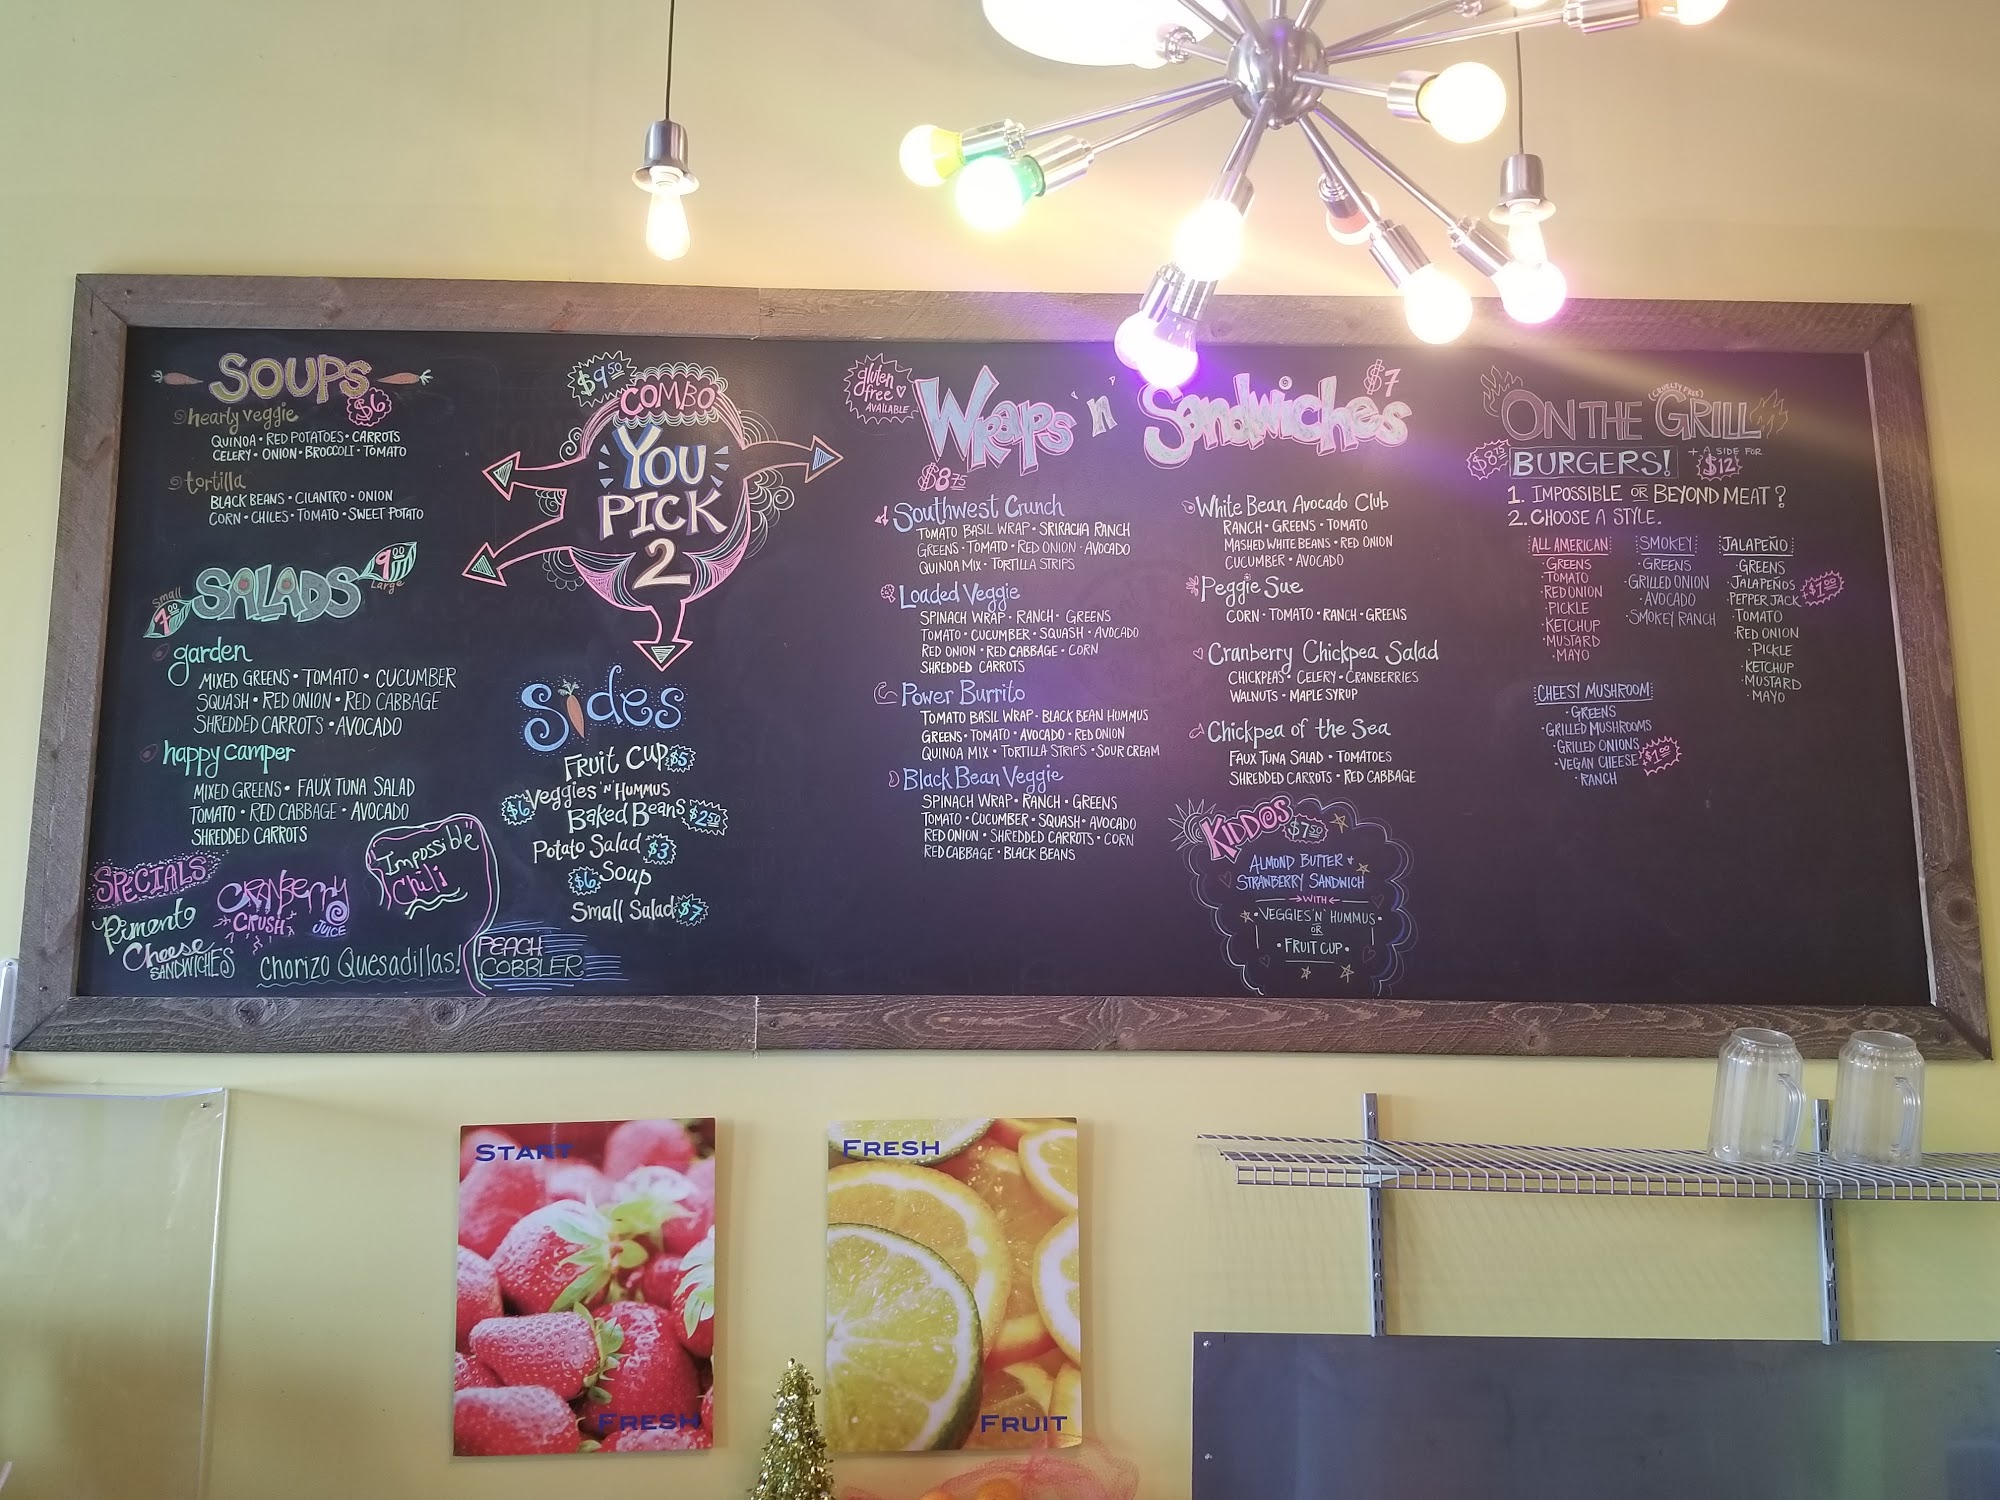 SOUPS
$6
hearly veggie
QUINOA • RED POTATOES • CARROTS
CELERY • ONION • BROCCOLI • TOMATO
tortilla
BLACK BEANS • CILANTRO • ONION
CORN • CHILES • TOMATO • SWEET POTATO
Small 7.00
SALADS
9.00 Large
garden
MIXED GREENS • TOMATO • CUCUMBER
SQUASH • RED ONION • RED CABBAGE
SHREDDED CARROTS • AVOCADO
happy camper
MIXED GREENS • FAUX TUNA SALAD
TOMATO • RED CABBAGE • AVOCADO
SHREDDED CARROTS
SPECIALS
Pimento
Cheese
SANDWICHES
CRANBERRY
CRUSH
JUICE
"Impossible"
Chili
Chorizo Quesadillas!
PEACH
COBBLER
$9.50
COMBO
YOU
PICK
2
Sides
FRUIT CUP $5
$6 VEGGIES 'N' HUMMUS
BAKED BEANS $2.50
POTATO SALAD $3
$6 SOUP
SMALL SALAD $7
gluten
free
AVAILABLE
Wraps 'n' Sandwiches
$7
$8.75
Southwest Crunch
TOMATO BASIL WRAP • SRIRACHA RANCH
GREENS • TOMATO • RED ONION • AVOCADO
QUINOA MIX • TORTILLA STRIPS
Loaded Veggie
SPINACH WRAP • RANCH • GREENS
TOMATO • CUCUMBER • SQUASH • AVOCADO
RED ONION • RED CABBAGE • CORN
SHREDDED CARROTS
Power Burrito
TOMATO BASIL WRAP • BLACK BEAN HUMMUS
GREENS • TOMATO • AVOCADO • RED ONION
QUINOA MIX • TORTILLA STRIPS • SOUR CREAM
Black Bean Veggie
SPINACH WRAP • RANCH • GREENS
TOMATO • CUCUMBER • SQUASH • AVOCADO
RED ONION • SHREDDED CARROTS • CORN
RED CABBAGE • BLACK BEANS
White Bean Avocado Club
RANCH • GREENS • TOMATO
MASHED WHITE BEANS • RED ONION
CUCUMBER • AVOCADO
Peggie Sue
CORN • TOMATO • RANCH • GREENS
Cranberry Chickpea Salad
CHICKPEAS • CELERY • CRANBERRIES
WALNUTS • MAPLE SYRUP
Chickpea of the Sea
FAUX TUNA SALAD • TOMATOES
SHREDDED CARROTS • RED CABBAGE
KIDDOS
$7.50
ALMOND BUTTER +
STRAWBERRY SANDWICH
WITH
• VEGGIES 'N' HUMMUS •
OR
• FRUIT CUP •
(CRUELTY FREE)
ON THE GRILL
$8.75
BURGERS!
+ A SIDE FOR
$12
1. IMPOSSIBLE OR BEYOND MEAT?
2. CHOOSE A STYLE.
ALL AMERICAN
• GREENS
TOMATO
• RED ONION
• PICKLE
• KETCHUP
• MUSTARD
• MAYO
SMOKEY
• GREENS
• GRILLED ONION
• AVOCADO
• SMOKEY RANCH
JALAPEÑO
• GREENS
• JALAPEÑOS
• PEPPER JACK +$1.00
• TOMATO
• RED ONION
• PICKLE
• KETCHUP
• MUSTARD
• MAYO
CHEESY MUSHROOM
• GREENS
• GRILLED MUSHROOMS
• GRILLED ONIONS
• VEGAN CHEESE +$1.00
• RANCH
START
FRESH
FRESH
FRUIT